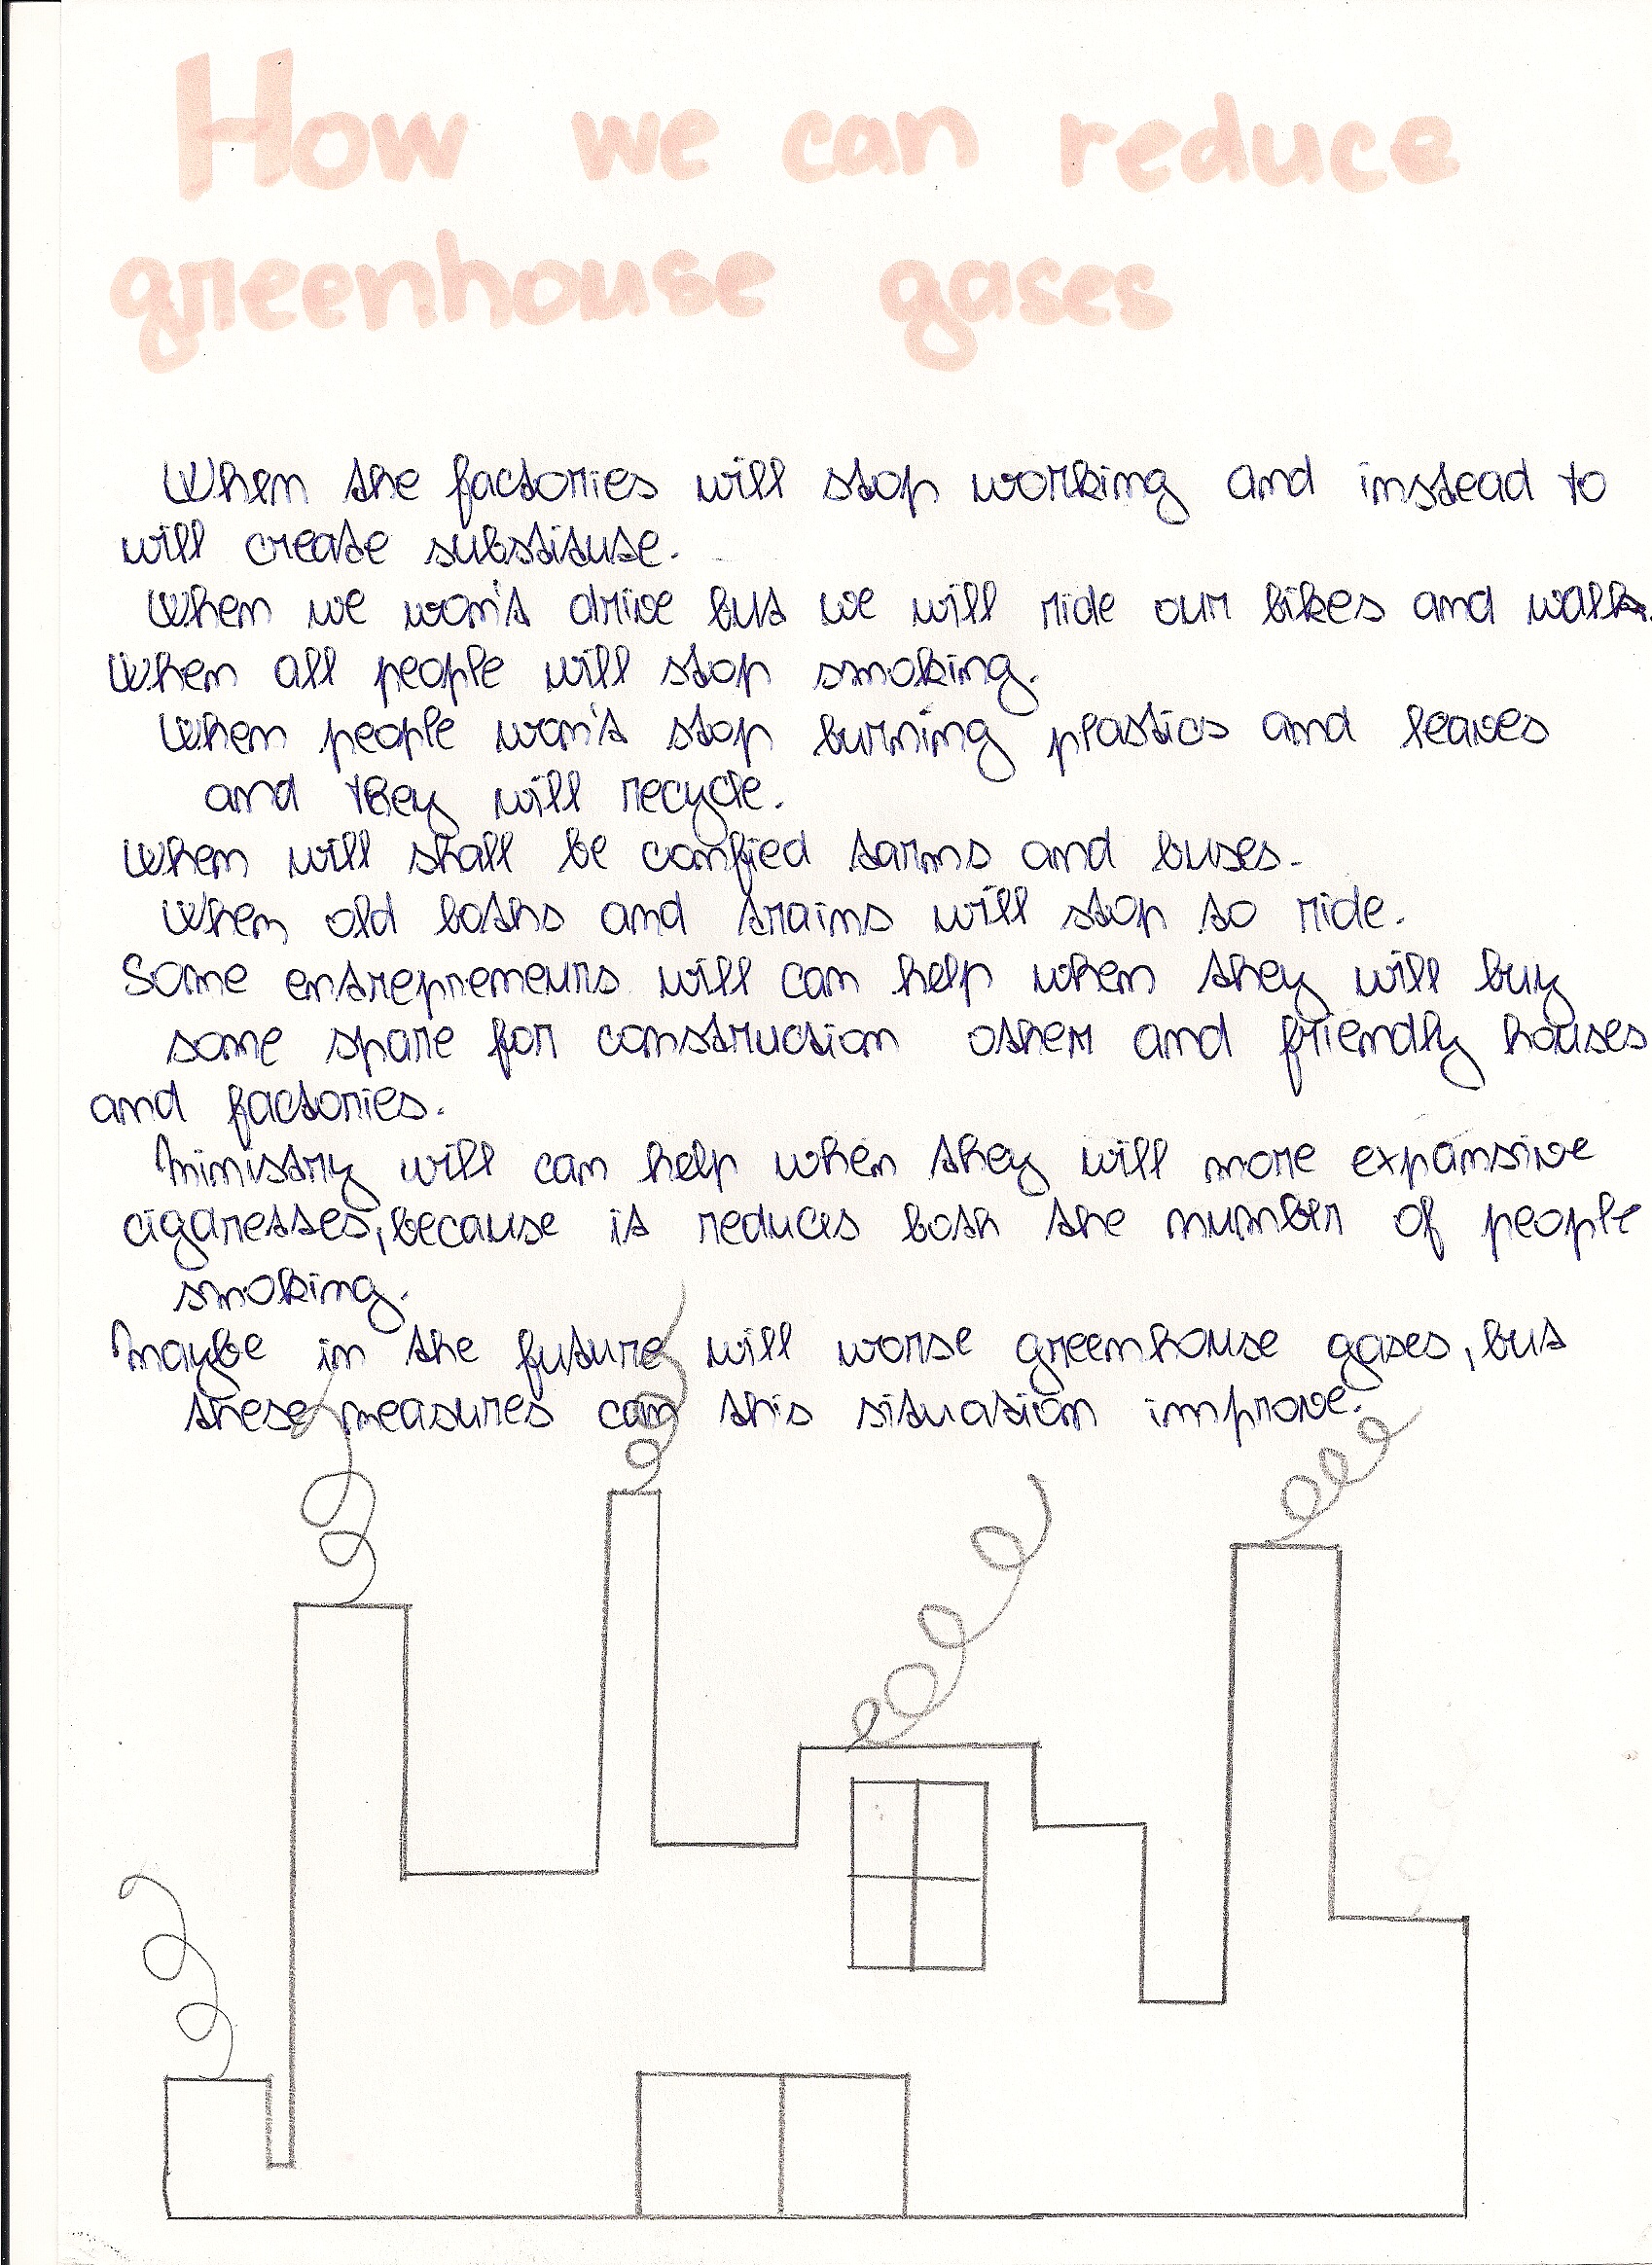 How we can reduce
greenhouse gases
When the factories will stop working and instead to
will create substitute.
When we won't drive but we will ride our bikes and walk.
When all people will stop smoking.
When people won't stop burning plastics and leaves
and they will recycle.
When will shall be confied tarms and buses.
When old boths and trains will stop to ride.
Some entrepreneurs will can help when they will buy
some spare for construction other and friendly houses
and factories.
Ministry will can help when they will more expansive
cigarettes, because it reduces both the number of people
smoking.
Maybe in the future will worse greenhouse gases, but
these measures can this situation improve.